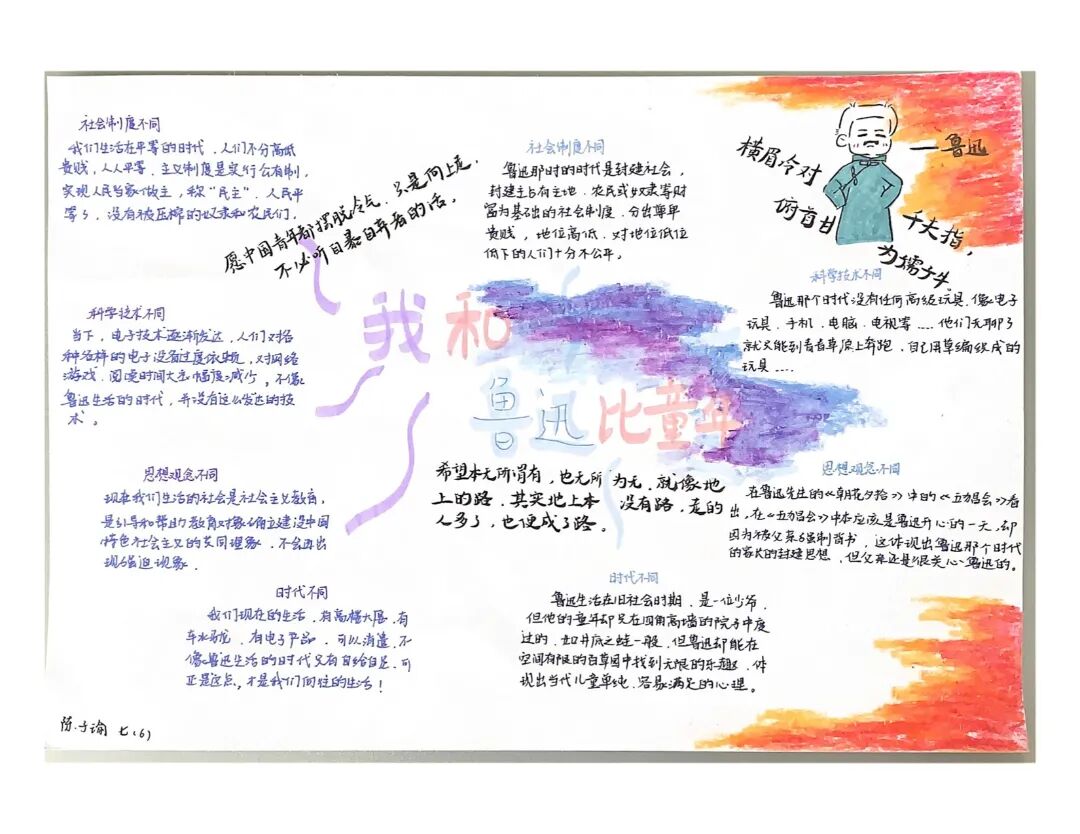 社会制度不同
我们生活在平等的时代，人们不分高低
贵贱，人人平等，主义制度是实行公有制，
实现人民当家做主，称“民主”，人民平
等了，没有被压榨的奴隶和农民们。
愿中国青年都摆脱冷气，只是向上走，
不必听自暴自弃者的话。
社会制度不同
鲁迅那时的时代是封建社会，
封建土占有土地、农民或奴隶等财
富为基础的社会制度，分出尊卑
贵贱，地位高低，对地位低位
低下的人们十分不公平。
横眉冷对
千夫指，
俯首甘
为孺子牛。
——鲁迅
科学技术不同
当下，电子技术逐渐发达，人们对各
种各样的电子设备过度依赖，对网络
游戏，阅读时间大幅度减少，不像
鲁迅生活的时代，并没有这么发达的技
术。
我和
鲁迅比童年
科学技术不同
鲁迅那个时代没有任何高级玩具，像电子
玩具、手机、电脑、电视等……他们无聊了
就只能到青青草原上奔跑，自己用草编织成的
玩具……
思想观念不同
现在我们生活的社会是社会主义教育，
是引导和帮助教育对象确立建设中国
特色社会主义的共同理象，不会再出
现强迫现象。
希望本无所谓有，也无所为无，就像地
上的路，其实地上本没有路，走的
人多了，也便成了路。
思想观念不同
在鲁迅先生的《朝花夕拾》中的《五猖会》看
出，在《五猖会》中本应该是鲁迅开心的一天，却
因为被父亲强制背书，这体现出鲁迅那个时代
的家长的封建思想，但父亲还是很关心鲁迅的。
时代不同
我们现在的生活，有高楼大厦，有
车水马龙，有电子产品，可以消遣，不
像鲁迅生活的时代只有自给自足，可
正是这点，才是我们向往的生活！
时代不同
鲁迅生活在旧社会时期，是一位少爷，
但他的童年却只在四角高墙的院子中度
过的，如井底之蛙一般，但鲁迅却能在
空间有限的百草园中找到无限的乐趣，体
现出当代儿童单纯、容易满足的心理。
陈子瑜 七(6)